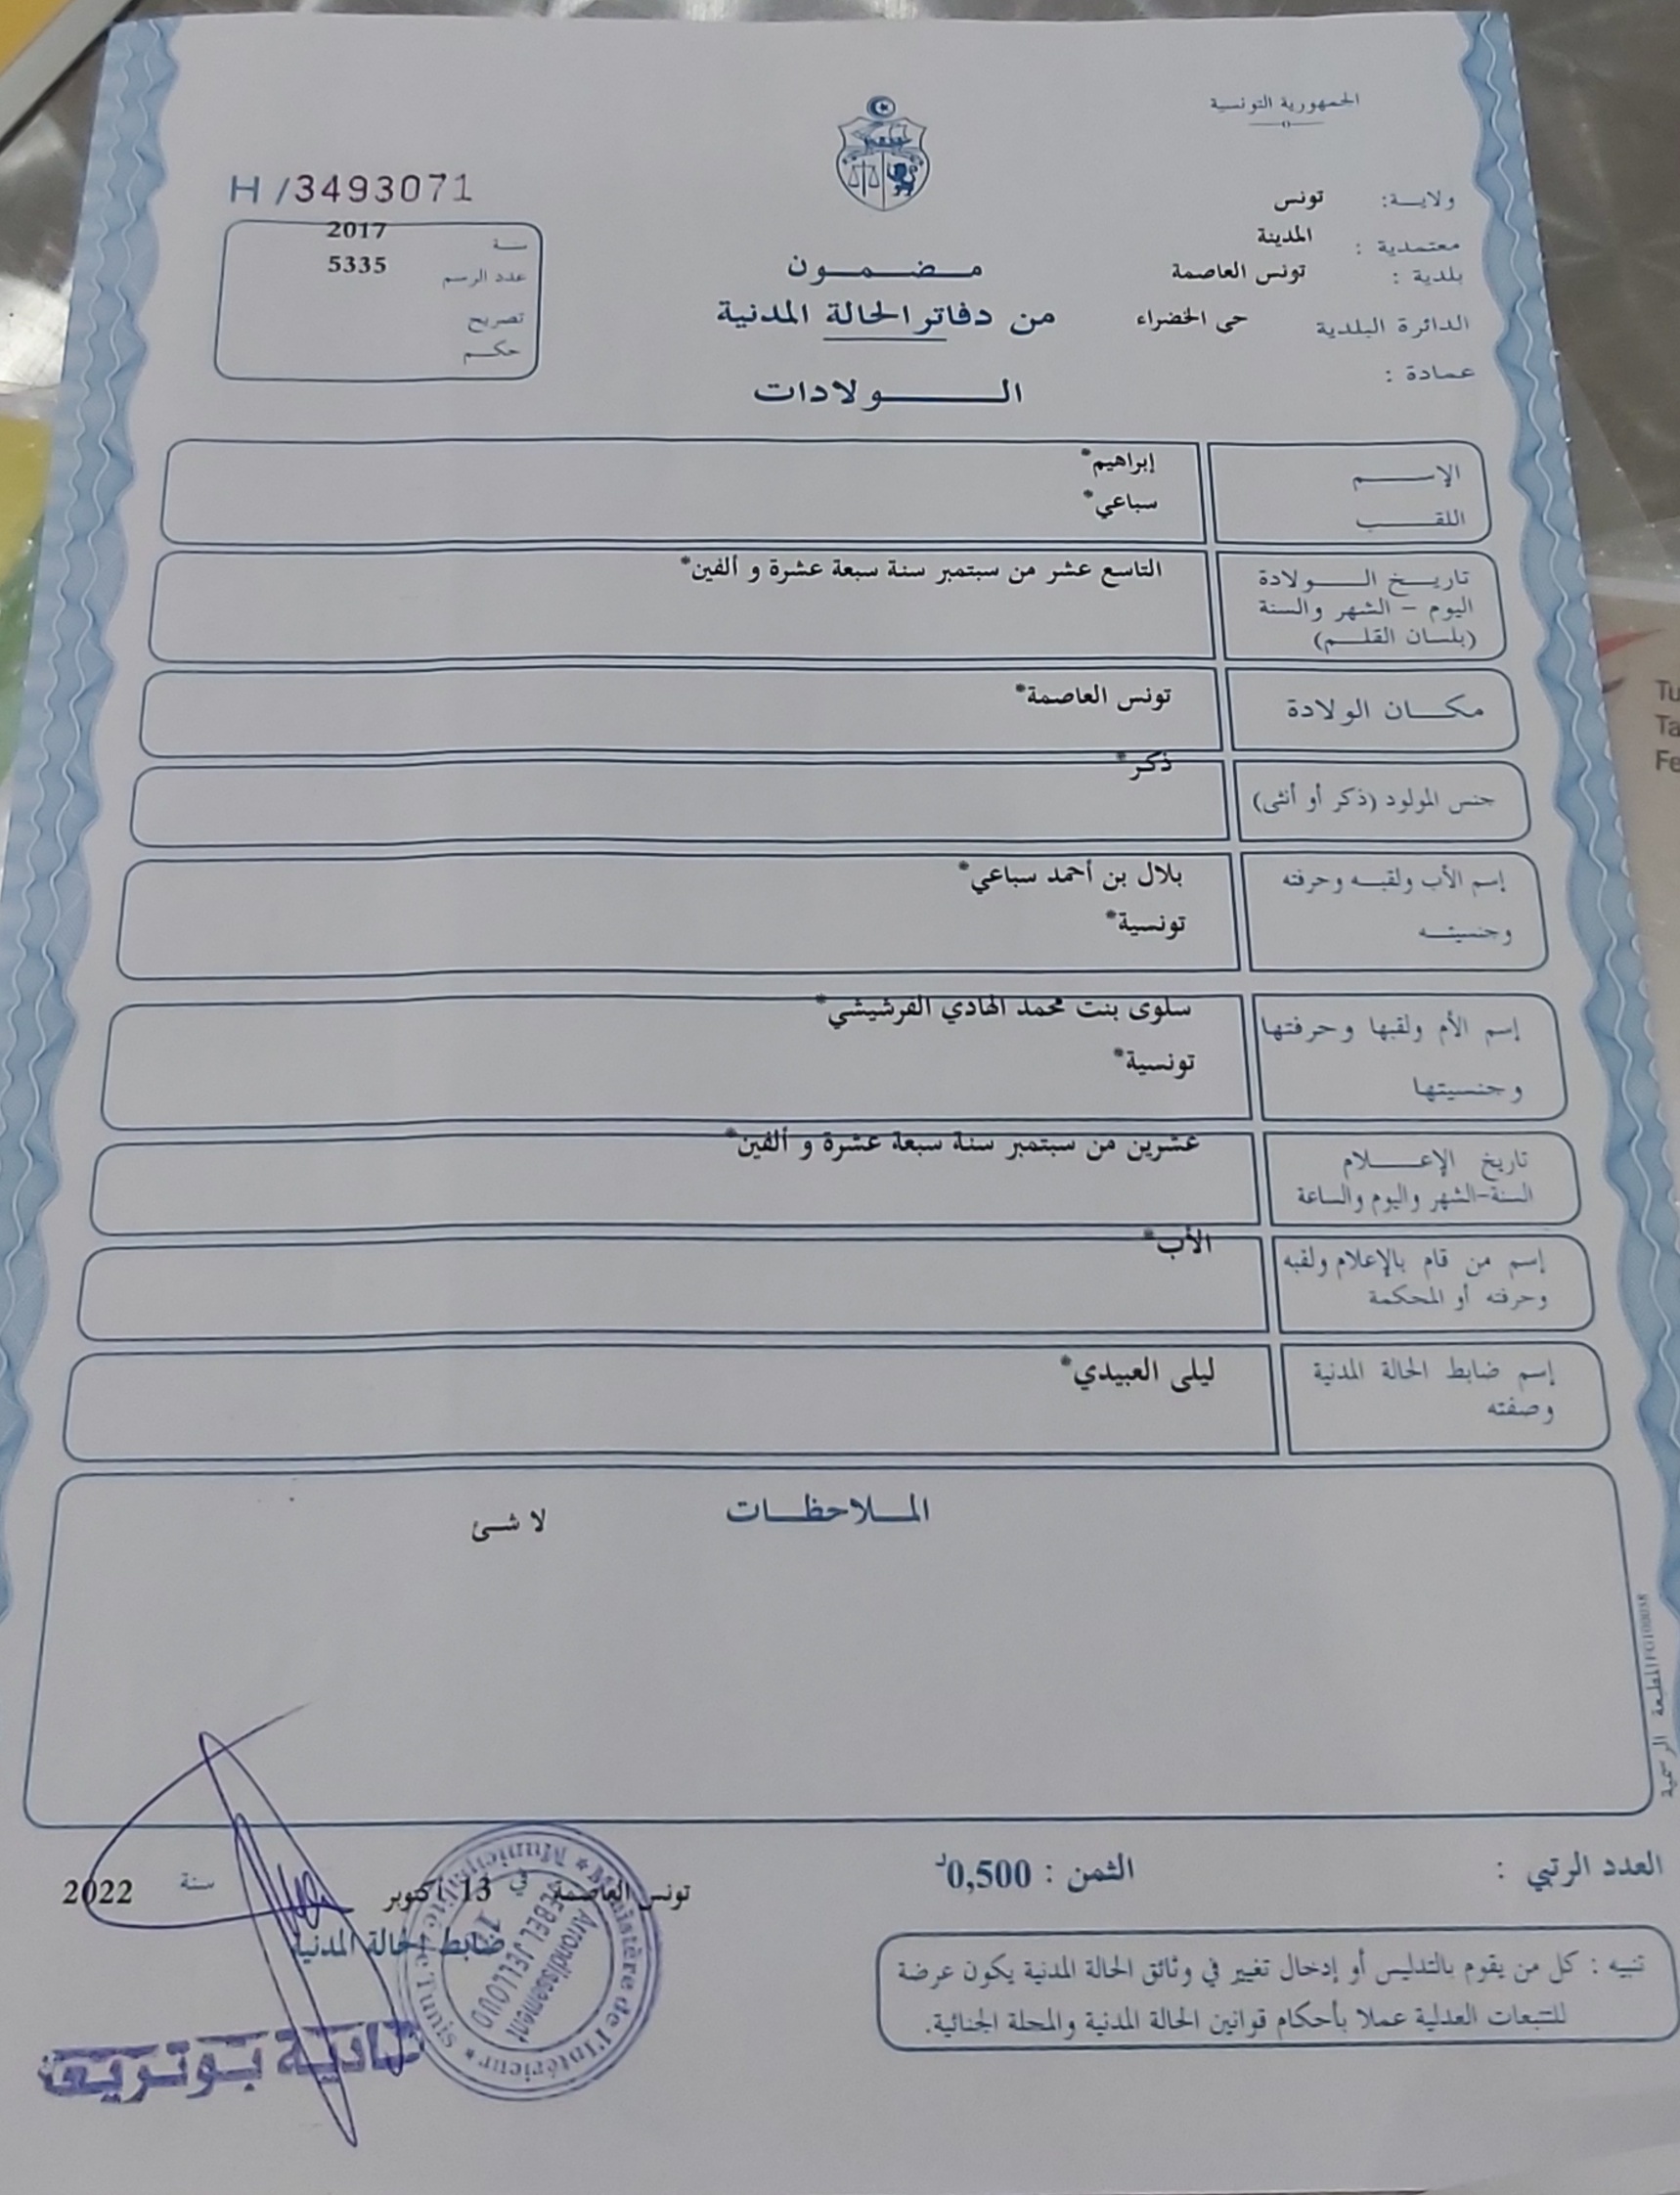 الجمهورية التونسية
ولايـــة: تونس
معتمدية : المدينة
بلدية : تونس العاصمة
الدائرة البلدية حى الخضراء
عمادة :
H /3493071
سنة 2017
عدد الرسم 5335
تصريح
حكم
مضمون
من دفاتر الحالة المدنية
الولادات
الإسم إبراهيم*
اللقب سباعي*
تاريخ الولادة التاسع عشر من سبتمبر سنة سبعة عشرة و ألفين*
اليوم – الشهر والسنة
(بلسان القلم)
مكان الولادة تونس العاصمة*
جنس المولود (ذكر أو أنثى) ذكر*
إسم الأب ولقبه وحرفته بلال بن أحمد سباعي*
وجنسيته تونسية*
إسم الأم ولقبها وحرفتها سلوى بنت محمد الهادي الفرشيشي*
وجنسيتها تونسية*
تاريخ الإعلام عشرين من سبتمبر سنة سبعة عشرة و ألفين*
السنة-الشهر واليوم والساعة
إسم من قام بالإعلام ولقبه الأب*
وحرفته أو المحكمة
إسم ضابط الحالة المدنية ليلى العبيدي*
وصفته
الملاحظات
لا شئ
المطبعة الرسمية
العدد الرتبي :
الثمن : 0,500د
تونس العاصمة في 13 أكتوبر سنة 2022
ضابط الحالة المدنية
Ministère de l'Intérieur * Municipalité de Tunis *
Arrondissement
JEBEL JELLOUD
تنبيه : كل من يقوم بالتدليس أو إدخال تغيير في وثائق الحالة المدنية يكون عرضة
للتتبعات العدلية عملا بأحكام قوانين الحالة المدنية والمجلة الجنائية.
Tu
Ta
Fe